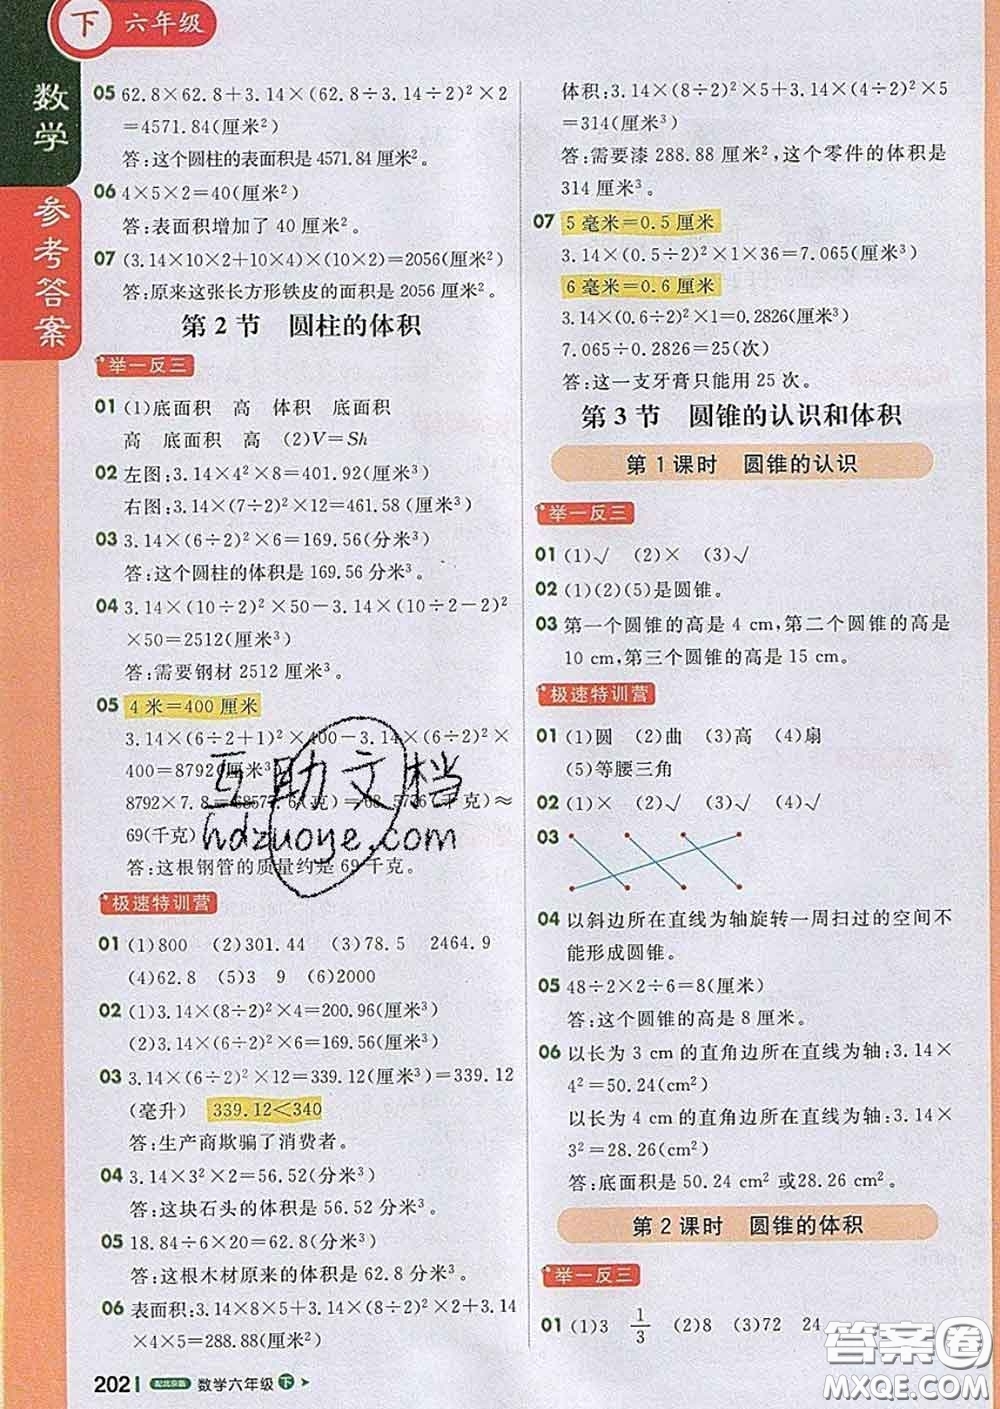 下 六年级
数学
参考答案
05 62.8×62.8+3.14×(62.8÷3.14÷2)²×2
=4571.84(厘米²)
答:这个圆柱的表面积是 4571.84 厘米²。
06 4×5×2=40(厘米²)
答:表面积增加了 40 厘米²。
07 (3.14×10×2+10×4)×(10×2)=2056(厘米²)
答:原来这张长方形铁皮的面积是 2056 厘米²。
第 2 节 圆柱的体积
举一反三
01 (1)底面积 高 体积 底面积
高 底面积 高 (2)V=Sh
02 左图:3.14×4²×8=401.92(厘米³)
右图:3.14×(7÷2)²×12=461.58(厘米³)
03 3.14×(6÷2)²×6=169.56(分米³)
答:这个圆柱的体积是 169.56 分米³。
04 3.14×(10÷2)²×50-3.14×(10÷2-2)²
×50=2512(厘米³)
答:需要钢材 2512 厘米³。
05 4 米=400 厘米
3.14×(6÷2+1)²×400-3.14×(6÷2)²×
400=8792(厘米³)
8792×7.8=68577.6(克)=68.5776(千克)≈
69(千克)
答:这根钢管的质量约是 69 千克。
极速特训营
01 (1)800 (2)301.44 (3)78.5 2464.9
(4)62.8 (5)3 9 (6)2000
02 (1)3.14×(8÷2)²×4=200.96(厘米³)
(2)3.14×(6÷2)²×6=169.56(厘米³)
03 3.14×(6÷2)²×12=339.12(厘米³)=339.12
(毫升) 339.12<340
答:生产商欺骗了消费者。
04 3.14×3²×2=56.52(分米³)
答:这块石头的体积是 56.52 分米³。
05 18.84÷6×20=62.8(分米³)
答:这根木材原来的体积是 62.8 分米³。
06 表面积:3.14×8×5+3.14×(8÷2)²×2+3.14
×4×5=288.88(厘米²)
202 配北京版 数学六年级 下
体积:3.14×(8÷2)²×5+3.14×(4÷2)²×5
=314(厘米³)
答:需要漆 288.88 厘米²,这个零件的体积是
314 厘米³。
07 5 毫米=0.5 厘米
3.14×(0.5÷2)²×1×36=7.065(厘米³)
6 毫米=0.6 厘米
3.14×(0.6÷2)²×1=0.2826(厘米³)
7.065÷0.2826=25(次)
答:这一支牙膏只能用 25 次。
第 3 节 圆锥的认识和体积
第 1 课时 圆锥的认识
举一反三
01 (1)√ (2)× (3)√
02 (1)(2)(5)是圆锥。
03 第一个圆锥的高是 4 cm,第二个圆锥的高是
10 cm,第三个圆锥的高是 15 cm。
极速特训营
01 (1)圆 (2)曲 (3)高 (4)扇
(5)等腰三角
02 (1)× (2)√ (3)√ (4)√
03
04 以斜边所在直线为轴旋转一周扫过的空间不
能形成圆锥。
05 48÷2×2÷6=8(厘米)
答:这个圆锥的高是 8 厘米。
06 以长为 3 cm 的直角边所在直线为轴:3.14×
4²=50.24(cm²)
以长为 4 cm 的直角边所在直线为轴:3.14×
3²=28.26(cm²)
答:底面积是 50.24 cm² 或28.26 cm²。
第 2 课时 圆锥的体积
举一反三
01 (1)3 1/3 (2)8 (3)72 24
互助文档
hdzuoye.com
答案圈
MXQE.COM